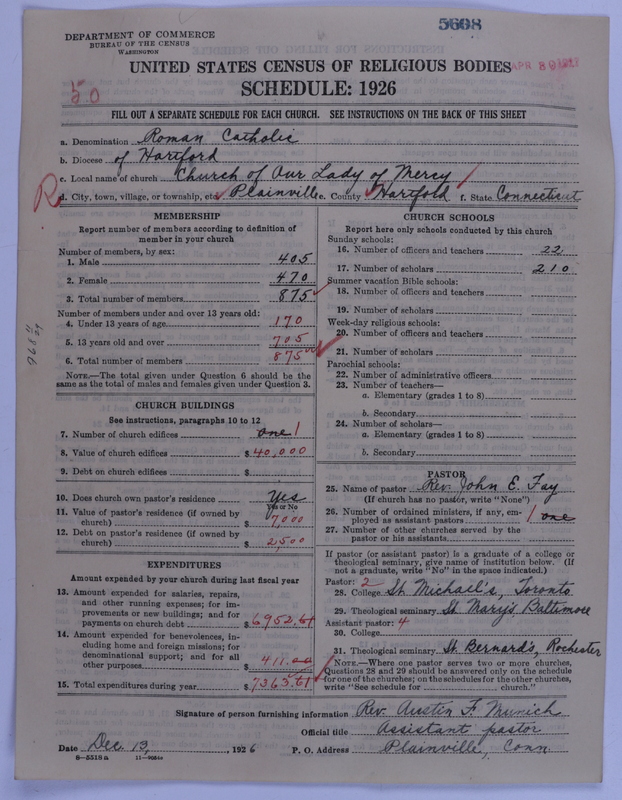 5608
DEPARTMENT OF COMMERCE
BUREAU OF THE CENSUS
WASHINGTON
APR 8 1927
UNITED STATES CENSUS OF RELIGIOUS BODIES
SCHEDULE: 1926
50
FILL OUT A SEPARATE SCHEDULE FOR EACH CHURCH. SEE INSTRUCTIONS ON THE BACK OF THIS SHEET
a. Denomination Roman Catholic
b. Diocese of Hartford
c. Local name of church Church of Our Lady of Mercy
R
d. City, town, village, or township, etc. Plainville e. County Hartford f. State Connecticut
MEMBERSHIP
Report number of members according to definition of
member in your church
Number of members, by sex:
1. Male 405
2. Female 470
3. Total number of members 875
Number of members under and over 13 years old:
4. Under 13 years of age 170
5. 13 years old and over 705
6. Total number of members 875
NOTE.—The total given under Question 6 should be the
same as the total of males and females given under Question 3.
CHURCH BUILDINGS
See instructions, paragraphs 10 to 12
7. Number of church edifices one 1
8. Value of church edifices $ 40,000
9. Debt on church edifices $
10. Does church own pastor's residence Yes
Yes or No
11. Value of pastor's residence (if owned by
church) $ 7,000
12. Debt on pastor's residence (if owned by
church) $ 2,500
EXPENDITURES
Amount expended by your church during last fiscal year
13. Amount expended for salaries, repairs,
and other running expenses; for im-
provements or new buildings; and for
payments on church debt $ 6952.61
14. Amount expended for benevolences, in-
cluding home and foreign missions; for
denominational support; and for all
other purposes $ 411.00
15. Total expenditures during year $ 7363.61
CHURCH SCHOOLS
Report here only schools conducted by this church
Sunday schools:
16. Number of officers and teachers 22
17. Number of scholars 210
Summer vacation Bible schools:
18. Number of officers and teachers
19. Number of scholars
Week-day religious schools:
20. Number of officers and teachers
21. Number of scholars
Parochial schools:
22. Number of administrative officers
23. Number of teachers—
a. Elementary (grades 1 to 8)
b. Secondary
24. Number of scholars—
a. Elementary (grades 1 to 8)
b. Secondary
PASTOR
25. Name of pastor Rev. John E. Fay
(If church has no pastor, write "None")
26. Number of ordained ministers, if any, em-
ployed as assistant pastors 1 one
27. Number of other churches served by the
pastor or his assistants
If pastor (or assistant pastor) is a graduate of a college or
theological seminary, give name of institution below. (If
not a graduate, write "No" in the space indicated.)
Pastor: 2
28. College St. Michael's, Toronto
29. Theological seminary St. Mary's Baltimore
Assistant pastor: 4
30. College
31. Theological seminary St. Bernard's, Rochester
NOTE.—Where one pastor serves two or more churches,
Questions 28 and 29 should be answered only on the schedule
for one of the churches; on the schedules for the other churches,
write "See schedule for church."
Signature of person furnishing information Rev. Austin F. Munich
Official title Assistant pastor
Date Dec. 13, 1926 P. O. Address Plainville, Conn.
8—5518 a 11—9054a